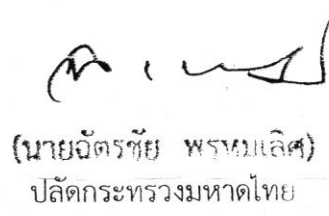 (นายฉัตรชัย พรหมเลิศ)
ปลัดกระทรวงมหาดไทย